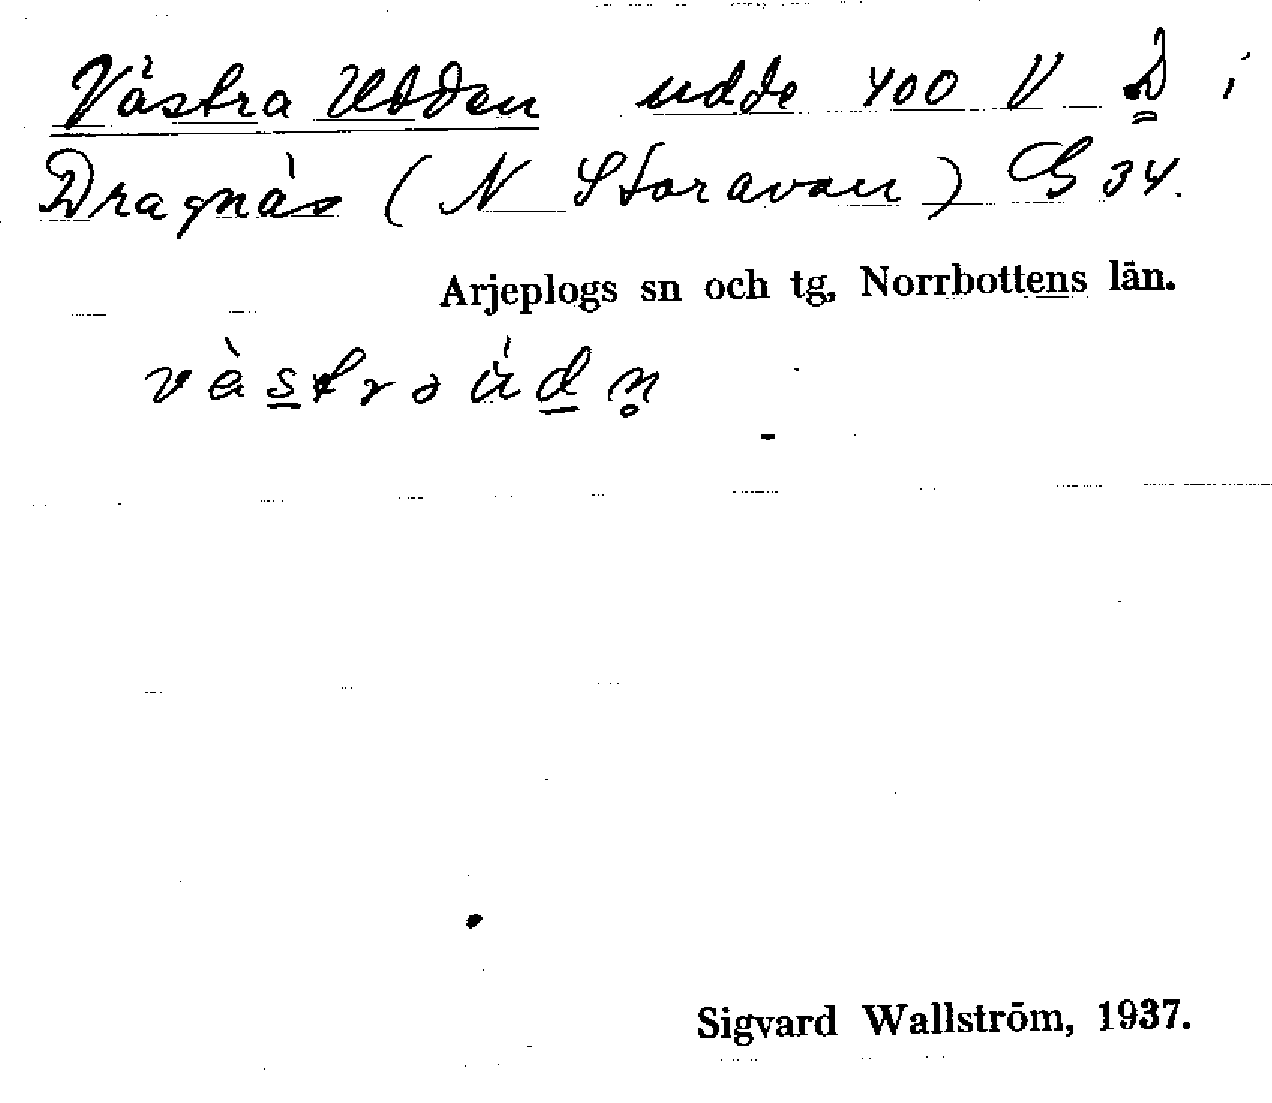 Västra Udden udde 400 V D i
Dragnäs (N Storavan) G 34.
Arjeplogs sn och tg, Norrbottens län.
vàstrəúdn̥
Sigvard Wallström, 1937.